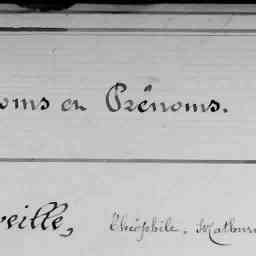 oms et Prénoms.
veille, Théophile. Mathur